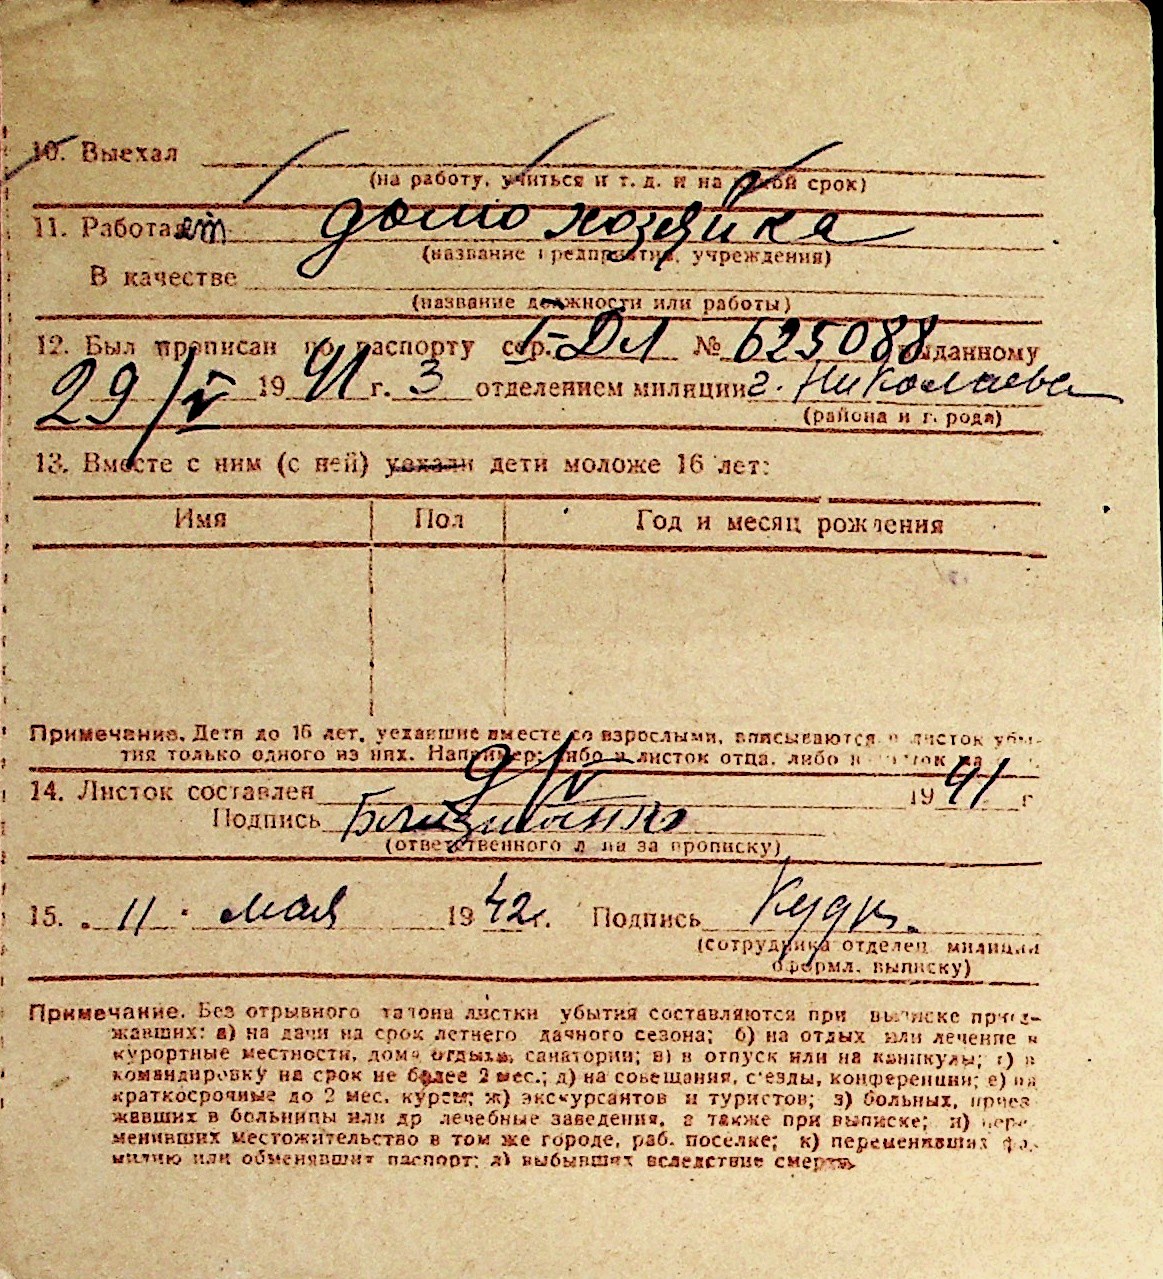 10. Выехал
(на работу, учиться и т. д. и на какой срок)
11. Работает домохозяйка
(название предприятия, учреждения)
В качестве
(название должности или работы)
12. Был прописан по паспорту сер. I-ДЛ № 625088 выданному
29/V 1941 г. 3 отделением милиции г. Николаева
(района и города)
13. Вместе с ним (с ней) уехали дети моложе 16 лет:
Имя Пол Год и месяц рождения
Примечание. Дети до 16 лет, уехавшие вместе со взрослыми, вписываются в листок убы-
тия только одного из них. Например: либо в листок отца, либо в листок
14. Листок составлен 9/V 1941 г
Подпись
(ответственного лица за прописку)
15. „ 11 " мая 1942 г. Подпись Кудк.
(сотрудника отделен. милиции
оформл. выписку)
Примечание. Без отрывного талона листки убытия составляются при выписке приез-
жавших: а) на дачи на срок летнего дачного сезона; б) на отдых или лечение в
курортные местности, дома отдыха, санатории; в) в отпуск или на каникулы; г) в
командировку на срок не более 2 мес.; д) на совещания, с'езды, конференции; е) на
краткосрочные до 2 мес. курсы; ж) экскурсантов и туристов; з) больных, приез-
жавших в больницы или др лечебные заведения, а также при выписке; и) пере-
менивших местожительство в том же городе, раб. поселке; к) переменивших фа-
милию или обменявших паспорт; л) выбывших вследствие смерти.